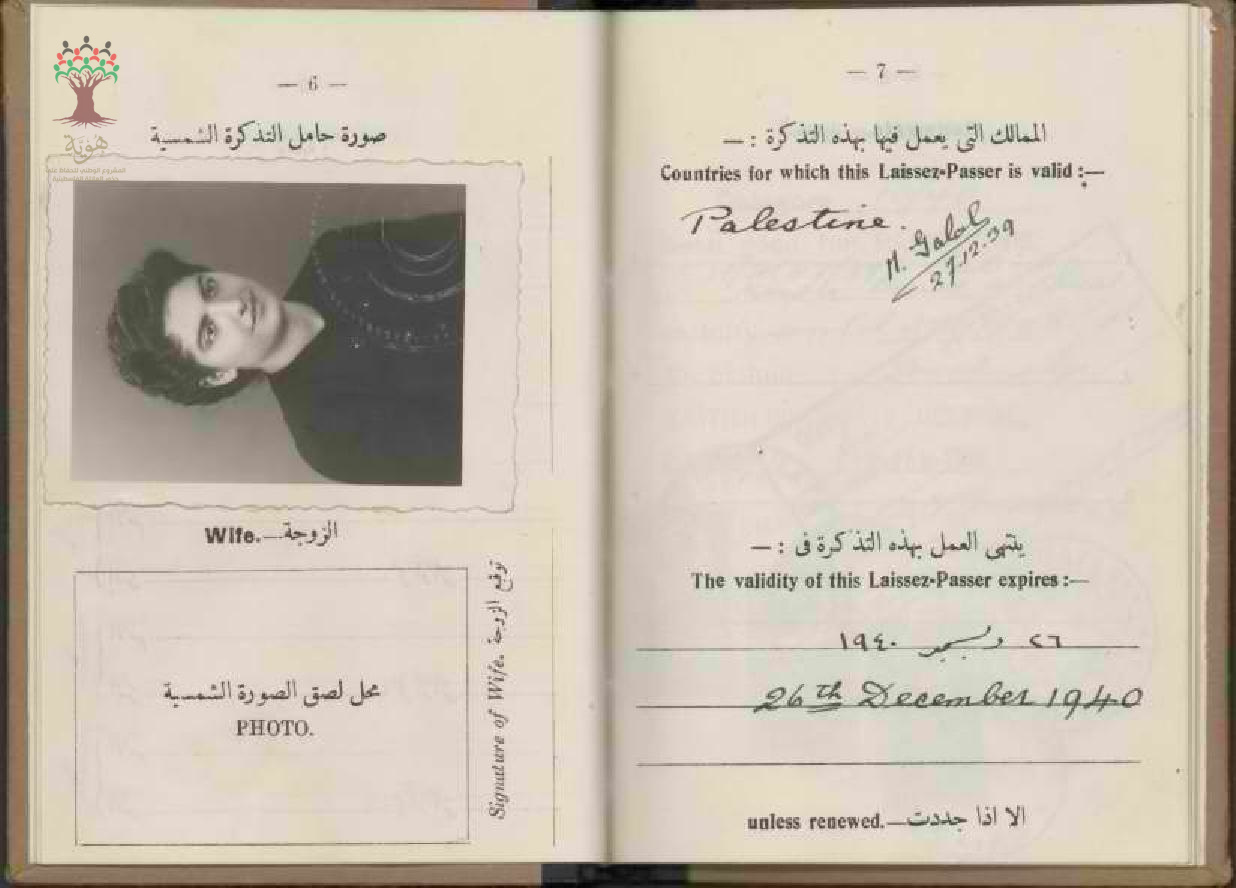 هوية
— 6 —
صورة حامل التذكرة الشمسية
Wife.—الزوجة
محل لصق الصورة الشمسية
PHOTO.
Signature of Wife. توقيع الزوجة
— 7 —
الممالك التى يعمل فيها بهذه التذكرة : —
Countries for which this Laissez-Passer is valid :—
Palestine.
M. Galal
27.12.39
ينتهى العمل بهذه التذكرة فى : —
The validity of this Laissez-Passer expires :—
٢٦ ديسمبر ١٩٤٠
26th December 1940
unless renewed.—الا اذا جددت